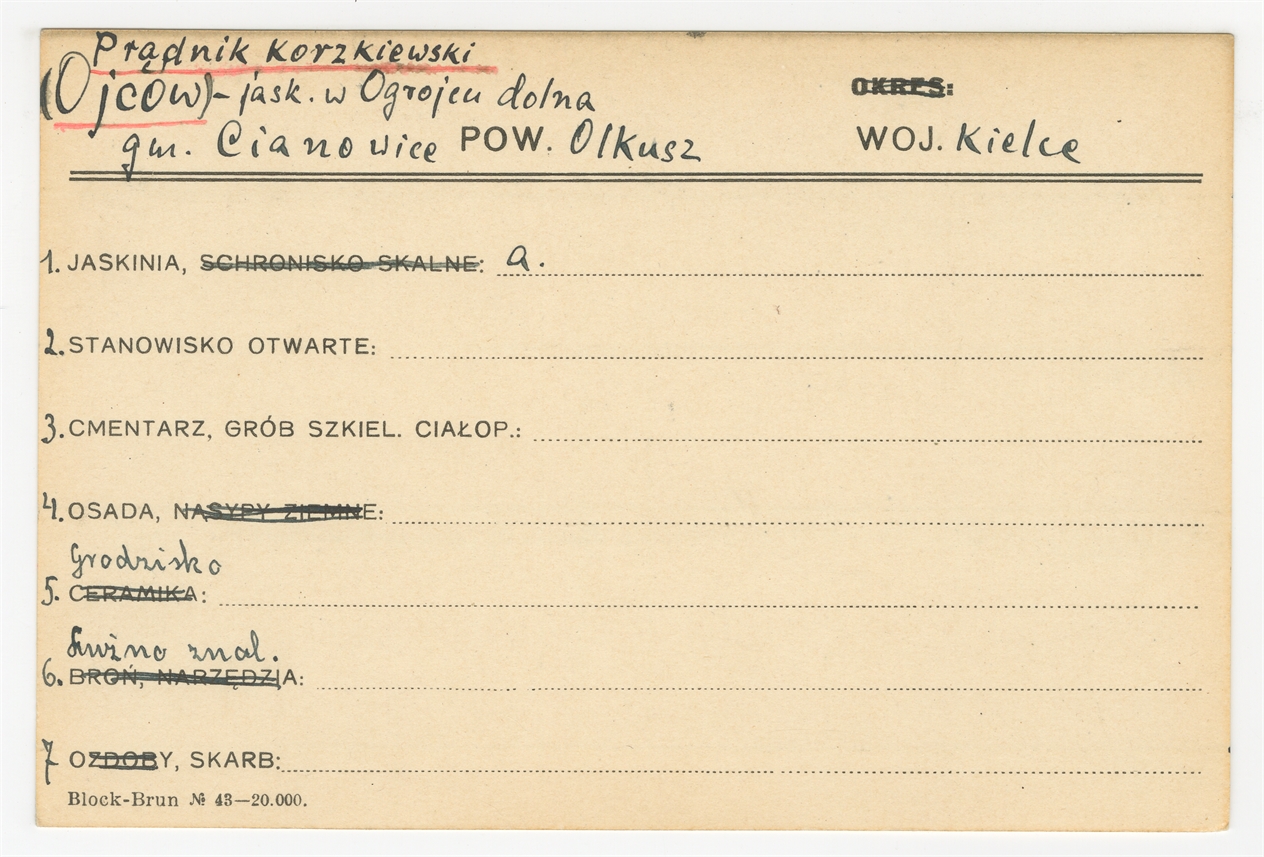 Prądnik Korzkiewski
(Ojców) - jask. w Ogrojcu dolna
OKRES:
gm. Cianowice POW. Olkusz WOJ. Kielce
1. JASKINIA, SCHRONISKO SKALNE: a.
2. STANOWISKO OTWARTE:
3. CMENTARZ, GRÓB SZKIEL. CIAŁOP.:
4. OSADA, NASYPY ZIEMNE:
Grodzisko
5. CERAMIKA:
Luźno znal.
6. BROŃ, NARZĘDZIA:
7 OZDOBY, SKARB:
Block-Brun № 43—20.000.